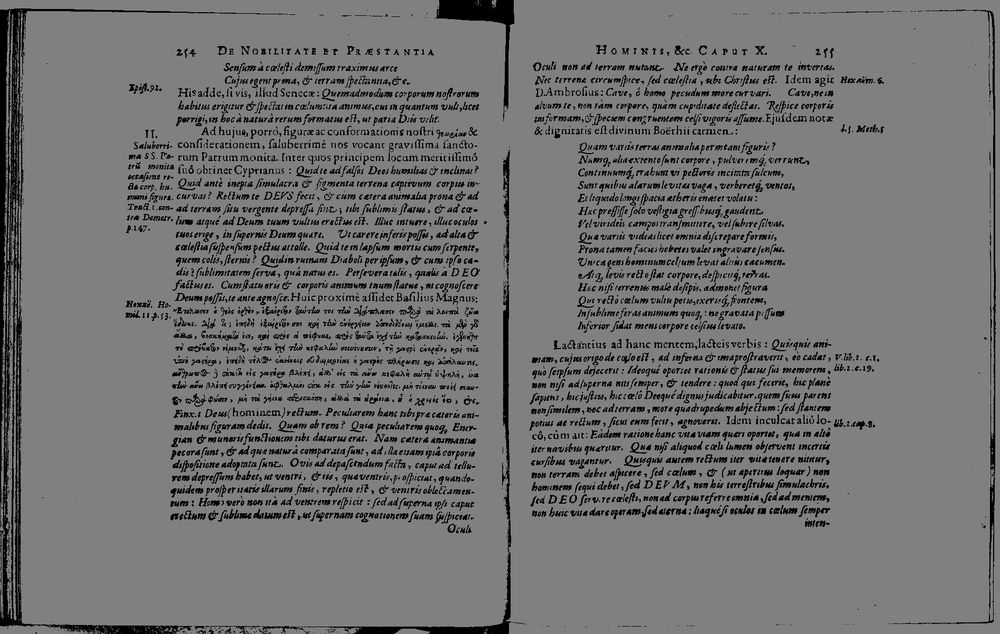 254 DE NOBILITATE ET PRÆSTANTIA
Sensum à cœlesti demissum traximus arce
Cujus egent prona, & terram spectantia, &c.
Epist. 92.
His adde, si vis, illud Senecæ: Quemadmodum corporum nostrorum
habitus erigitur & spectat in cœlum: ita animus, cui in quantum vult, licet
porrigi, in hoc à natura rerum formatus est, ut paria Diis velit.
II.
Saluberri-
ma SS. Pa-
trū monita
occasione re-
ctæ corp. hu-
mani figuræ.
Tract. 1. con-
tra Demetr.
p. 147.
Ad hujus, porrò, figuræ ac conformationis nostri &
considerationem, saluberrimè nos vocant gravissima sancto-
rum Patrum monita. Inter quos principem locum meritissimò
suô obtinet Cyprianus: Quid te ad falsos Deos humilias & inclinas?
Quid ante inepta simulacra & figmenta terrena captivum corpus in-
curvas? Rectum te DEVS fecit, & cum cætera animalia prona & ad
ad terram situ vergente depressa sint; tibi sublimis status, & ad cæ-
lum atque ad Deum tuum vultus erectus est. Illuc intuere, illuc oculos
tuos erige, in supernis Deum quære. Ut carere inferis possis, ad alta &
cœlestia suspensum pectus attolle. Quid te in lapsum mortis cum serpente,
quem colis, sternis? Quid in ruinam Diaboli per ipsum, & cum ipso ca-
dis? sublimitatem serva, quâ natus es. Persevera talis, qualis à DEO
factus es. Cum statu oris & corporis animum tuum statue, ut cognoscere
Deum possis, te ante agnosce. Huic proximè assidet Basilius Magnus:
Hexaë. Ho-
mil. 11 p. 53.
Finxit Deus (hominem) rectum. Peculiarem hanc tibi præ cæteris ani-
malibus figuram dedit. Quam ob rem? Quia peculiarem quoq, Ener-
gian & muneris functionem tibi daturus erat. Nam cætera animantia
pecora sunt, & ad quæ natura comparata sunt, ad illa etiam ipsa corporis
dispositione adoptata sunt. Ovis ad depascendum facta, caput ad tellu-
rem depressum habet, ut ventri, & iis, quæ ventris, prospiciat, quando-
quidem prosperitatis illarum finis, repletio est, & ventris oblectamen-
tum: Homo verò non ita ad ventrem respicit: sed ad superna ipsi caput
erectum & sublime datum est, ut supernam cognationem suam suspiciat.
Oculi
HOMINIS, &c. CAPUT X. 255
Oculi non ad terram nutant. Ne ergò contra naturam te invertas.
Nec terrena circumspice, sed cœlestia, ubi Christus est. Idem agit
Hexaëm. 6.
D. Ambrosius: Cave, ô homo pecudum more curvari. Cave, ne in
alvum te, non tàm corpore, quàm cupiditate deflectas. Respice corporis
tui formam, & speciem congruentem celsi vigoris assume. Ejusdem notæ
& dignitatis est divinum Boëthii carmen:
l. 5. Metr. 5
Quam variis terras animalia permeant figuris?
Namq, alia extento sunt corpore, pulveremq, verrunt,
Continuumq, trahunt vi pectoris incitata sulcum,
Sunt quibus alarum levitas vaga, verberetq, ventos,
Et liquido longi spacia ætheris enatet volatu:
Hæc pressisse solo vestigia gressibusq, gaudent
Vel virideis campos transmittere, vel subire silvas.
Quæ variis videas licet omnia discrepare formis,
Prona tamen facies hebetes valet ingravare sensus.
Unica gens hominum celsum levat altius cacumen.
Atq, levis recto stat corpore, despicitq, terras.
Hæc nisi terrenus male desipis, admonet figura
Qui recto cœlum vultu petis, exerisq, frontem,
In sublime feras animum quoq; ne gravata pessum
Inferior sidat mens corpore celsius levato.
Lactantius ad hanc mentem, lacteis verbis: Quisquis ani-
V. lib. 2. c. 1,
mam, cujus origo de cœlo est, ad inferna & ima prostraverit, eò cadat,
lib. 2. c. 19.
quò seipsum dejecerit: Ideoque oportet rationis & status sui memorem,
non nisi ad superna niti semper, & tendere: quod qui fecerit, hic planè
sapiens, hic justus, hic cœlô Deoque dignus judicabitur. quem suus parens
non similem, nec ad terram, more quadrupedum abjectum: sed stantem
potius ac rectum, sicut eum fecit, agnoverit. Idem inculcat aliô lo-
lib. 2. cap. 8.
cô, cùm ait: Eâdem ratione hanc vitæ viam quæri oportet, qua in altô
iter navibus quæritur. Quæ nisi aliquod cœli lumen observent incertis
cursibus vagantur. Quisquis autem rectum iter vitæ tenere nititur,
non terram debet aspicere, sed cœlum, & (ut apertius loquar) non
hominem sequi debet, sed DEVM, non his terrestribus simulachris,
sed DEO servire cœlesti, non ad corpus referre omnia, sed ad mentem,
non huic vitæ dare operam, sed æternæ: Itaque si oculos in cœlum semper
inten-